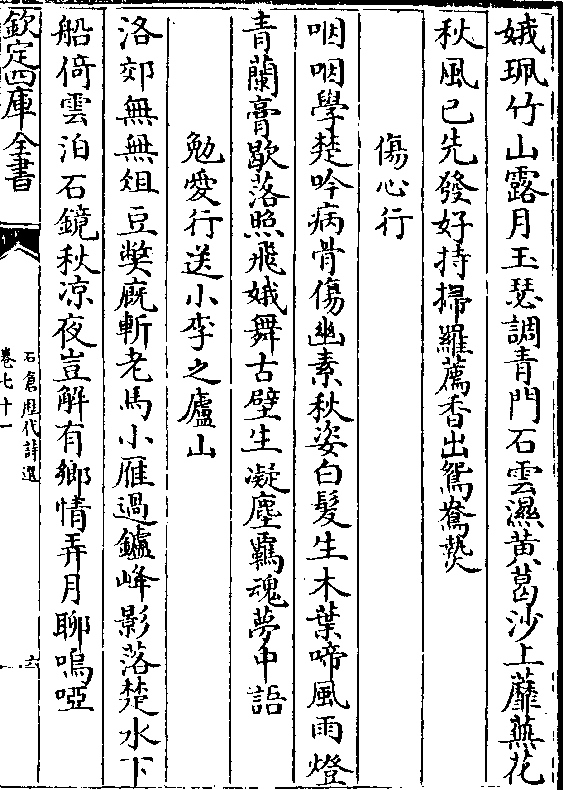 娥珮竹山露月玉瑟調青門石雲濕黄葛沙上蘼蕪花
秋風已先發好持掃羅薦香出鴛鴦𤍠
傷心行
咽咽學楚吟病骨傷幽素秋姿白髮生木葉啼風雨燈
青蘭膏歇落照飛蛾舞古壁生凝塵羈魂夢中語
勉愛行送小李之廬山
洛郊無無俎豆獘廐斬老馬小雁過鑪峰影落楚水下
船倚雲泊石鏡秋凉夜豈解有鄉情弄月聊嗚啞
欽定四庫全書
石倉歷代詩選
卷七十一
六